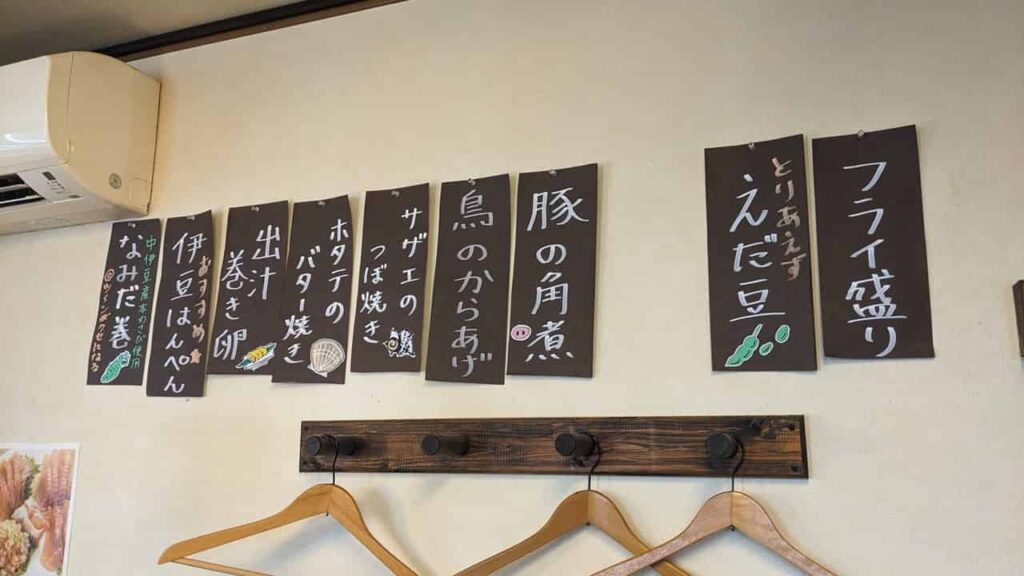 フライ盛り
とりあえず
えだ豆
豚の角煮
鳥のからあげ
サザエの
つぼ焼き
ホタテの
バター焼き
出汁
巻き卵
おすすめ
伊豆はんぺん
中伊豆産本わさび使用
なみだ巻